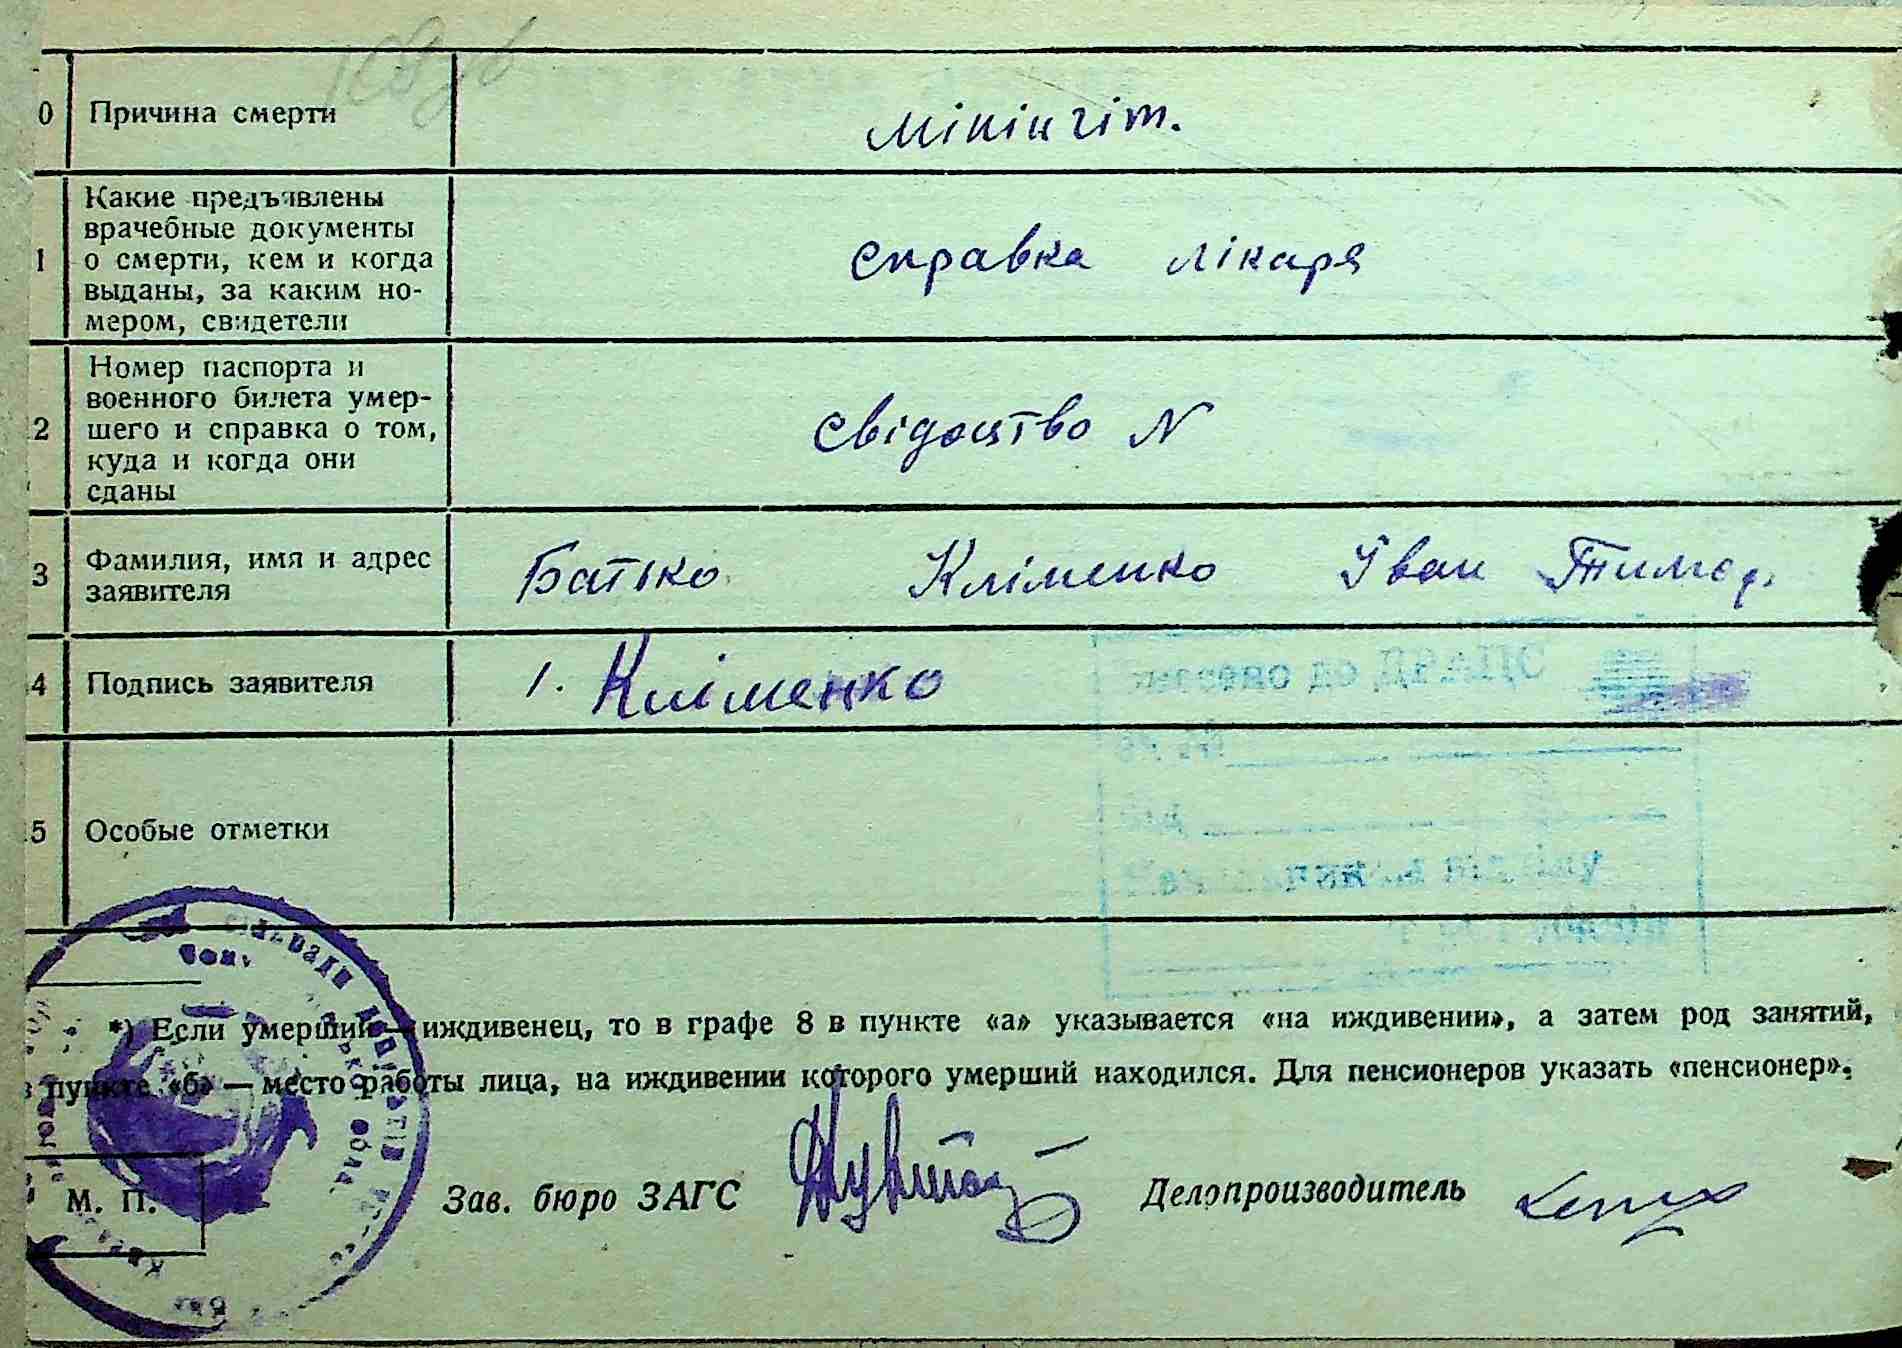 0 Причина смерти
мінінгіт.
1 Какие предъявлены
врачебные документы
о смерти, кем и когда
выданы, за каким но-
мером, свидетели
справка лікаря
2 Номер паспорта и
военного билета умер-
шего и справка о том,
куда и когда они
сданы
свідоцтво N
3 Фамилия, имя и адрес
заявителя
Батько Кліменко Іван Тимоф.
4 Подпись заявителя
І. Кліменко
5 Особые отметки
*) Если умерший — иждивенец, то в графе 8 в пункте «а» указывается «на иждивении», а затем род занятий,
пункте «б» — место работы лица, на иждивении которого умерший находился. Для пенсионеров указать «пенсионер».
М. П.
Зав. бюро ЗАГС
Делопроизводитель